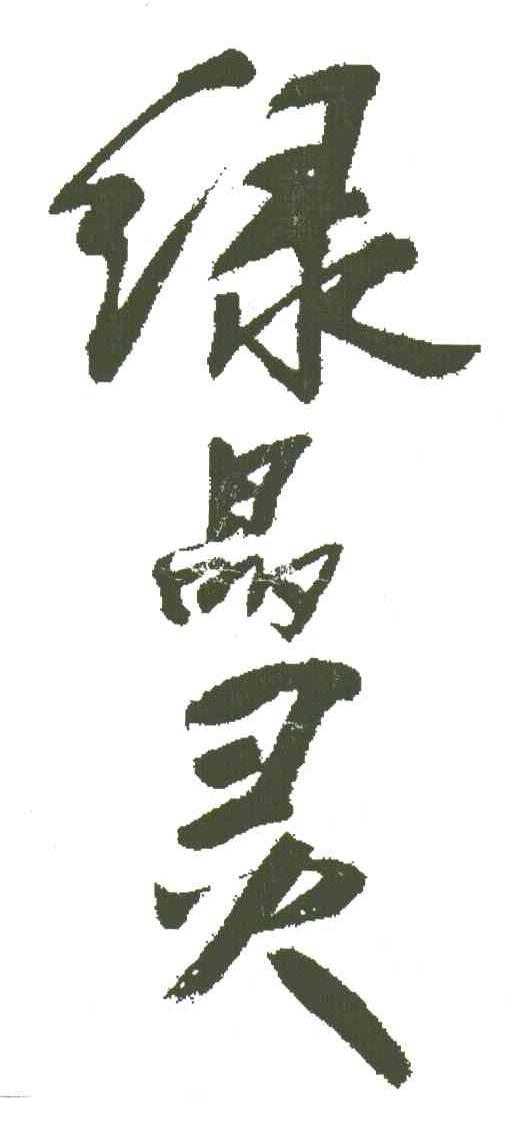 绿晶灵